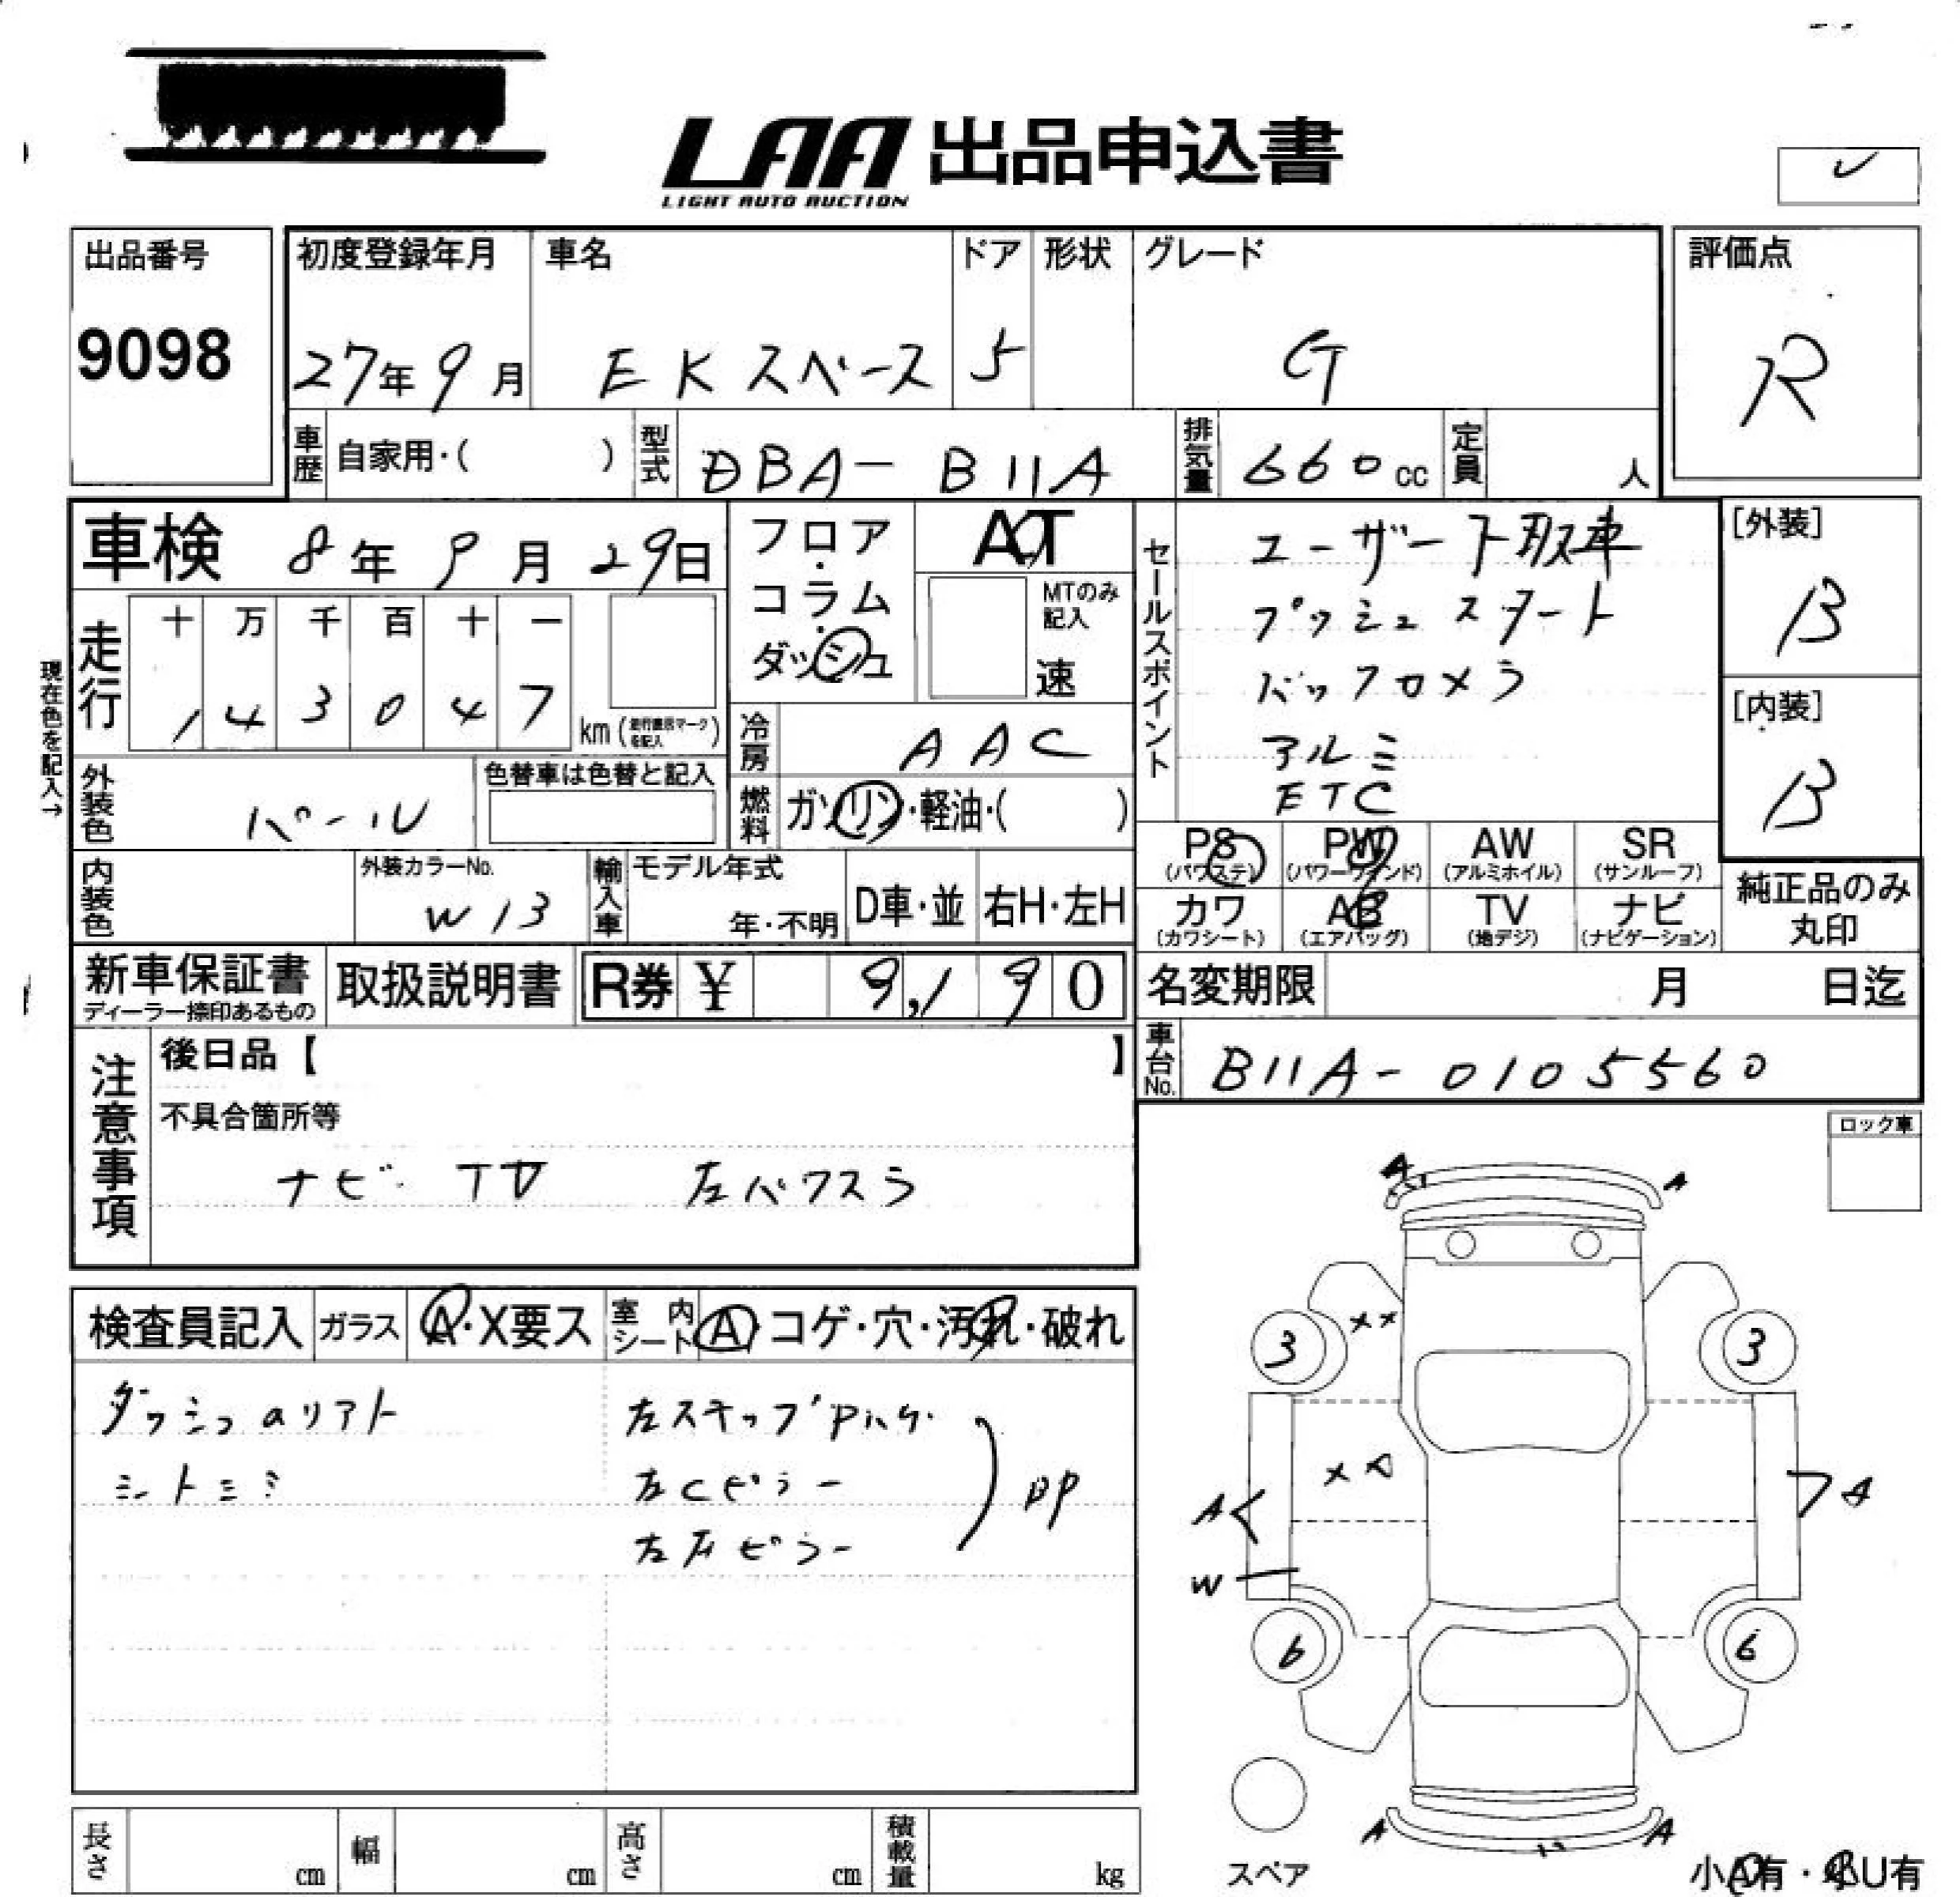 LAA 出品申込書
LIGHT AUTO AUCTION
出品番号
9098
初度登録年月
27年9月
車名
EKスペース
ドア
5
形状
グレード
G
評価点
R
車歴
自家用・( )
型式
DBA-B11A
排気量
660cc
定員
人
車検 8年9月29日
走行
十 万 千 百 十 一
1 4 3 0 4 7
km(走行表示マークを記入)
現在色を記入→
フロア
・
コラム
・
ダッシュ
AT
MTのみ
記入
速
冷房
AAC
燃料
ガソリン・軽油・( )
セールスポイント
ユーザー下取車
プッシュスタート
バックカメラ
アルミ
ETC
[外装]
B
[内装]
B
外装色
パール
色替車は色替と記入
内装色
外装カラーNo.
W13
輸入車
モデル年式
年・不明
D車・並
右H・左H
PS
(パワステ)
PW
(パワーウインド)
AW
(アルミホイル)
SR
(サンルーフ)
カワ
(カワシート)
AB
(エアバッグ)
TV
(地デジ)
ナビ
(ナビゲーション)
純正品のみ
丸印
新車保証書
ディーラー捺印あるもの
取扱説明書
R券 ¥ 9,190
名変期限
月 日迄
車台No.
B11A-0105560
注意事項
後日品【 】
不具合箇所等
ナビ TV 左パワスラ
ロック車
検査員記入
ガラス
A・X要ス
室内
シート
A・コゲ・穴・汚れ・破れ
左Cピラー
A A
X X
3 3
A
A
W
6 6
A A
スペア
小A有・小U有
長さ
cm
幅
cm
高さ
cm
積載量
kg